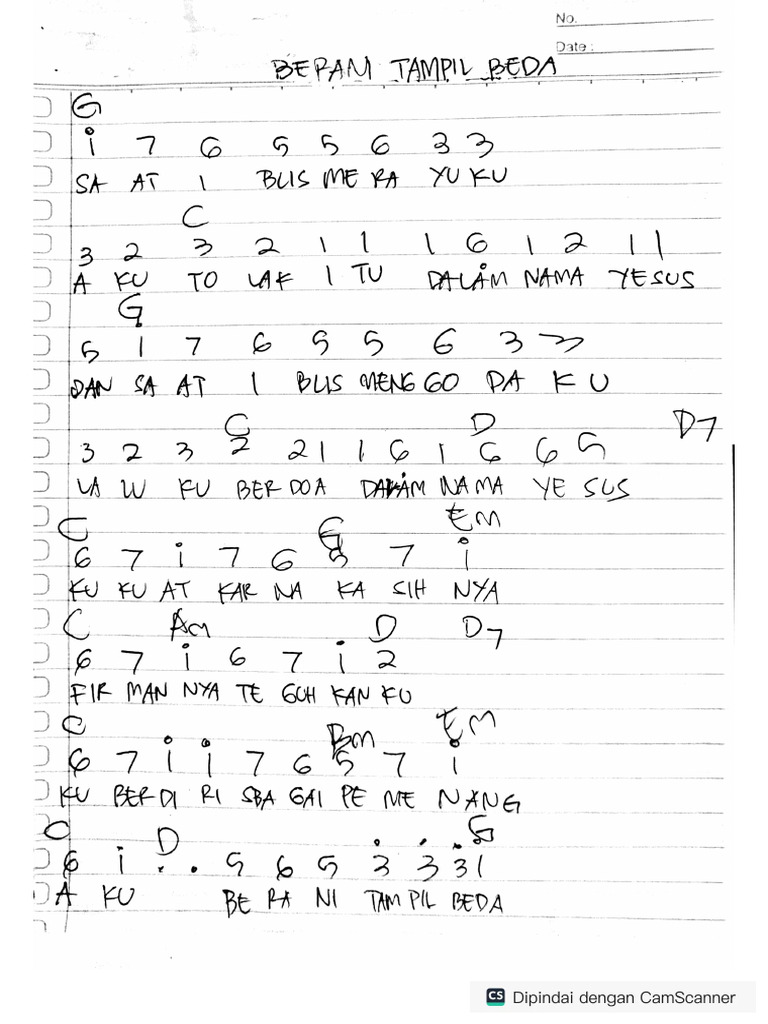 No.
Date :
BERANI TAMPIL BEDA
G
i 7 6 5 5 6 3 3
SA AT I BLIS ME RA YU KU
C
3 2 3 2 1 1 1 6 1 2 1 1
A KU TO LAK I TU DALAM NAMA YESUS
G
5 1 7 6 5 5 6 3 3
DAN SA AT I BLIS MENG GO DA KU
C D D7
3 2 3 2 2 1 1 6 1 6 6 5
LA LU KU BER DOA DALAM NAMA YE SUS
C G Em
6 7 i 7 6 5 7 i
KU KU AT KAR NA KA SIH NYA
C Am D D7
6 7 i 6 7 i 2
FIR MAN NYA TE GUH KAN KU
C Bm Em
6 7 i i 7 6 5 7 i
KU BERDI RI SBA GAI PE ME NANG
C D G
6 i . . 5 6 5 3 3 3 1
A KU BE RA NI TAM PIL BEDA
CS Dipindai dengan CamScanner